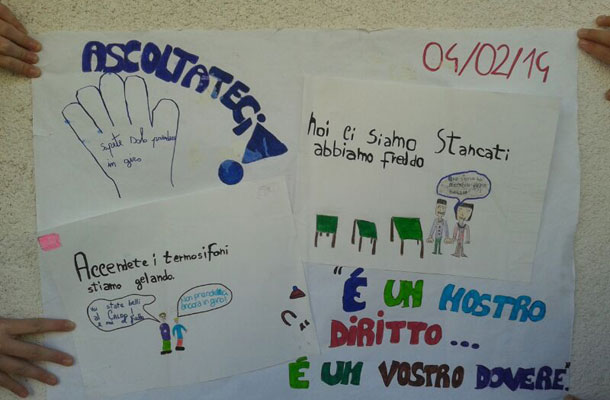 ASCOLTATECI!
04/02/14
Sapete solo prenderci
in giro
Noi ci siamo stancati
abbiamo freddo
Accendete i termosifoni
stiamo gelando.
voi state belli
al caldo
e noi al freddo
Non prendeteci
ancora in giro!
"É UN NOSTRO
DIRITTO...
É UN VOSTRO DOVERE".